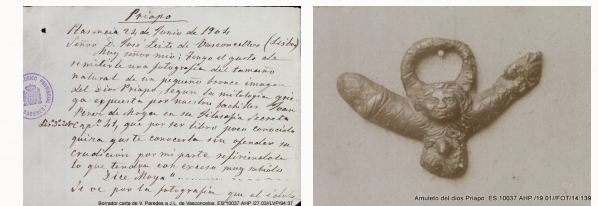 Priapo
Plasencia 24 de Junio de 1904
Señor D. José Leite de Vasconcellos (Lisboa)
Muy señor mio: Tengo el gusto de
remitirle una fotografia del tamaño
natural de un pequeño bronce imagen
del dios Priapo, segun la mitologia
expuesta por nuestro bachiller Joan
Perez de Moya en su Filosofia Secreta
Capº 41, que por ser libro poco conocido
quiza guste conocerla sin ofender su
erudicion por mi parte refiriendole
lo que tendra con exceso muy sabido
Dice Moya"
Si ve por la fotografia que el
Borrador carta de V. Paredes a J.L. de Vasconcelos. ES 10037 AHP /27.03//LVP/94:37
Amuleto del dios Príapo. ES 10037 AHP /19.01//FOT/14:139